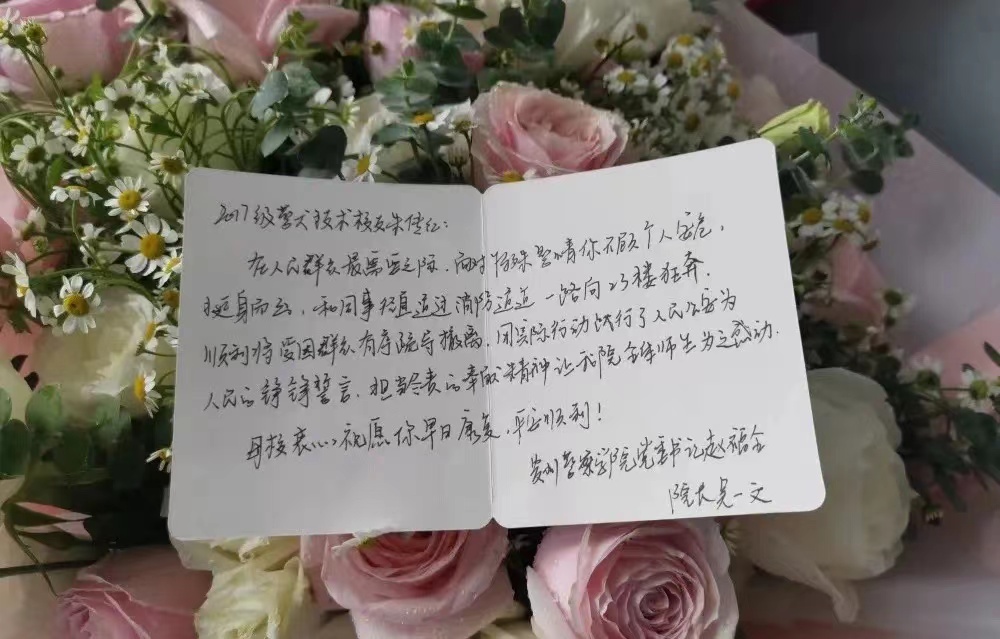 2017级警犬技术校友朱传红:
在人民群众最需要之际,面对特殊警情你不顾个人安危,
挺身而出,和同事们直通过消防通道一路向23楼狂奔.
顺利将受困群众有序疏导撤离,用实际行动践行了人民公安为
人民的铮铮誓言,担当尽责的奉献精神让我院全体师生为之感动.
母校衷心祝愿你早日康复,平安顺利!
贵州警察学院党委书记赵福全
院长吴一文